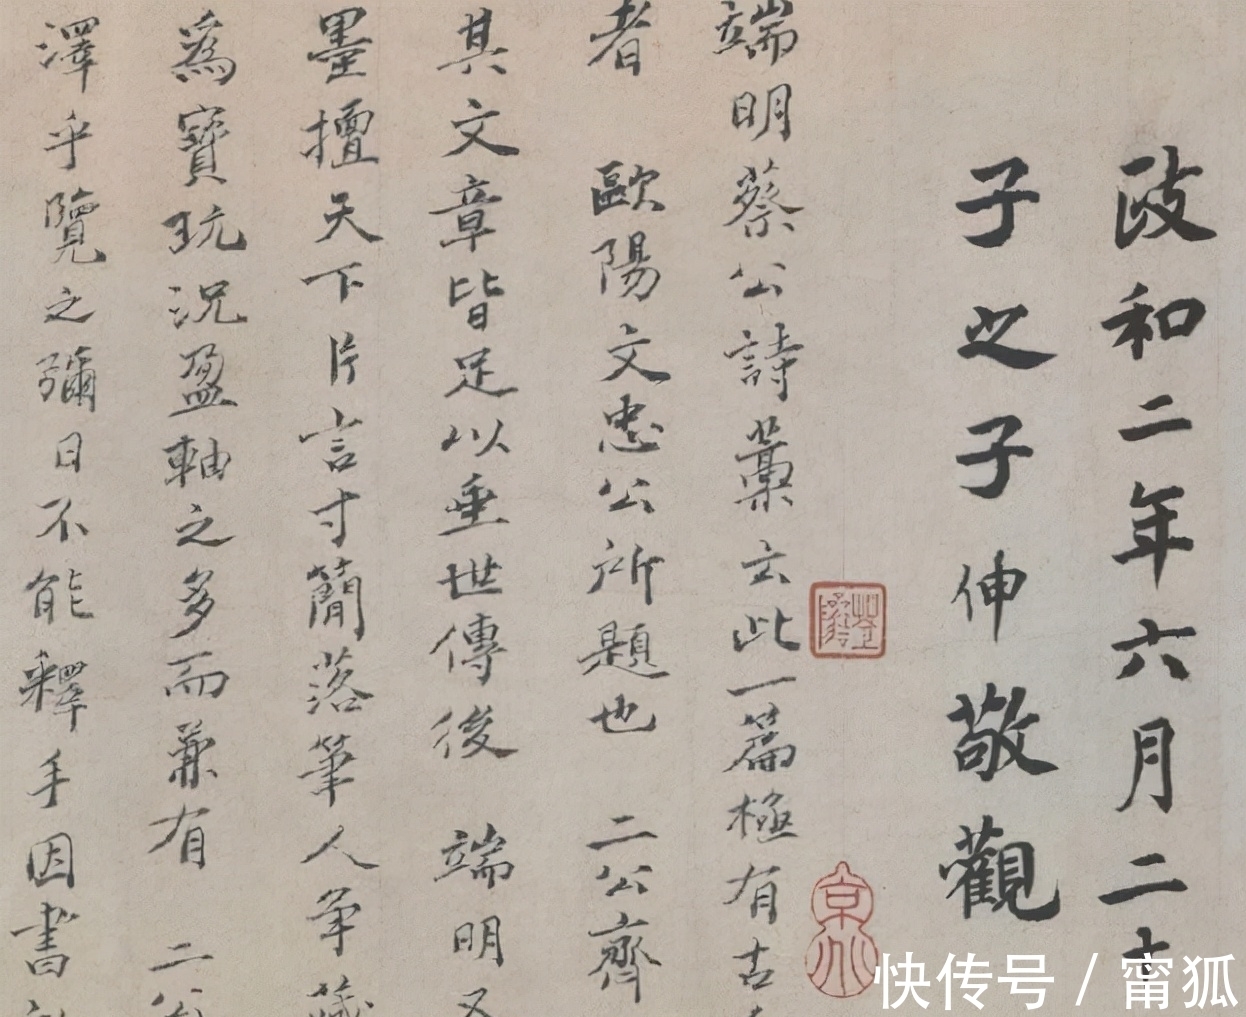 政和二年六月二
子之子伸敬觀
端明蔡公詩藁云此一篇極有古
者 歐陽文忠公所題也 二公齊
其文章皆足以垂世傳後 端明又
墨擅天下片言寸簡落筆人爭藏
為寶玩況盈軸之多而兼有 二公
澤乎覽之彌日不能釋手因書
京
快传号 / 甯狐